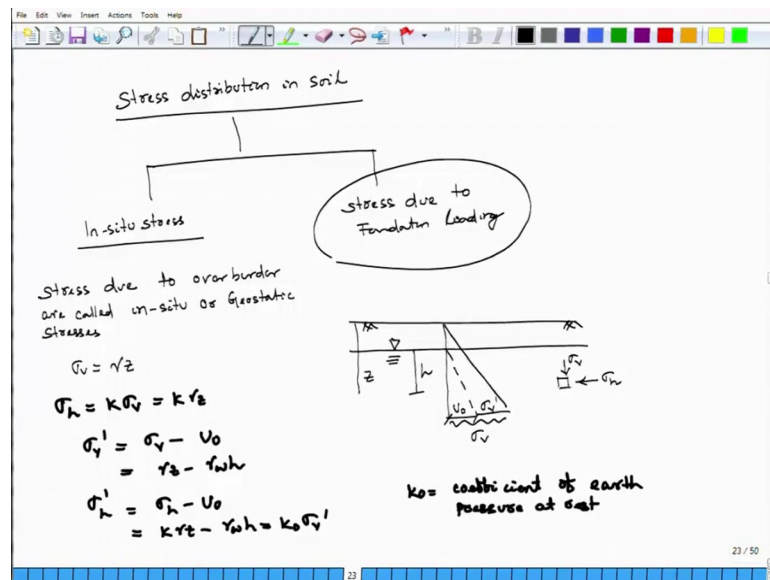 File Edit View Insert Actions Tools Help
Stress distribution in soil
In-situ stress
Stress due to
Foundation Loading
Stress due to overburden
are called in-situ or Geostatic
Stresses
σv = γz
σh = kσv = kγz
σv' = σv - u0
= γz - γwh
σh' = σh - u0
= kγz - γwh = k0σv'
z
h
u0 σv'
σv
σv
σh
k0 = coefficient of earth
pressure at rest
23 / 50
23